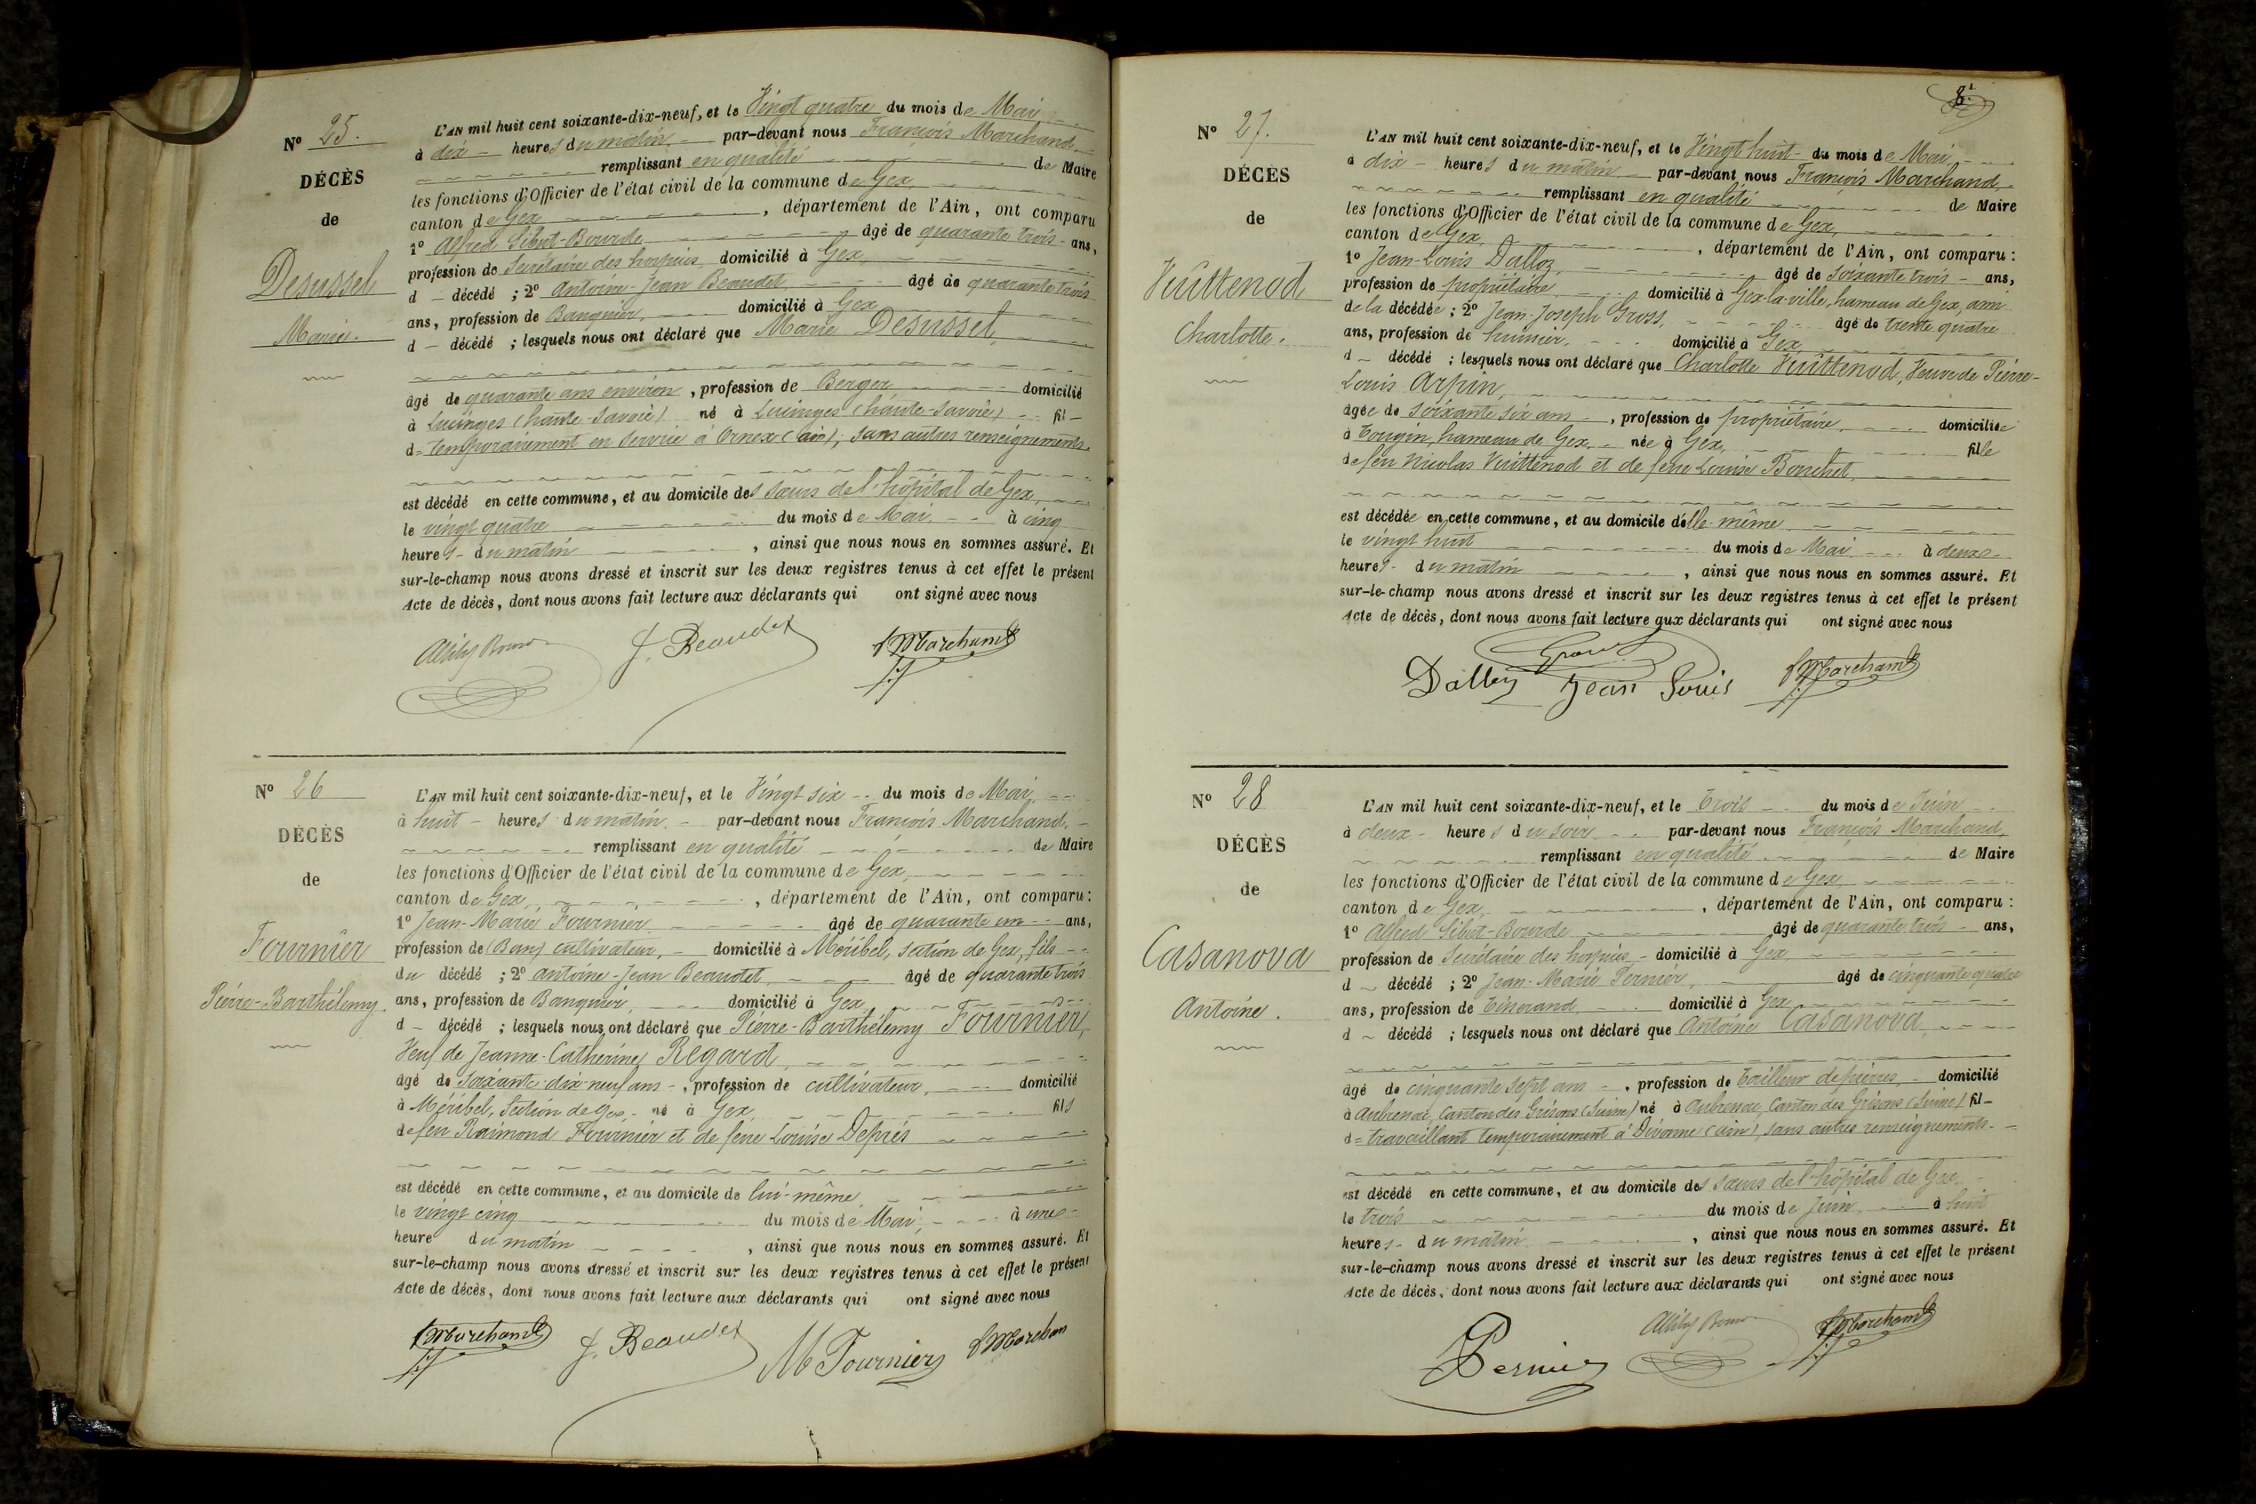 N° 25.
DÉCÈS
de
Desusset
Marie.
L'AN mil huit cent soixante-dix-neuf, et le Vingt quatre du mois de Mai
à dix heures du matin, par-devant nous François Marchand
remplissant en qualité de Maire
les fonctions d'Officier de l'état civil de la commune de Gex,
canton de Gex, département de l'Ain, ont comparu
1° Alfred Sibut-Bourde âgé de quarante trois ans,
profession de Secrétaire des hospices domicilié à Gex,
d décédé ; 2° Antoine-Jean Beaudet, âgé de quarante trois
ans, profession de Banquier, domicilié à Gex
d décédé ; lesquels nous ont déclaré que Marie Desusset,
âgé de quarante ans environ, profession de Berger domicilié
à Lucinges (haute-Savoie) né à Lucinges (haute-Savoie) fil
d temporairement en service à Ornex (ain); sans autres renseignements.
est décédé en cette commune, et au domicile des sœurs de l'hôpital de Gex,
le vingt quatre du mois de Mai à cinq
heures du matin, ainsi que nous nous en sommes assuré. Et
sur-le-champ nous avons dressé et inscrit sur les deux registres tenus à cet effet le présent
Acte de décès, dont nous avons fait lecture aux déclarants qui ont signé avec nous
J. Beaudet
f Marchand
N° 26
DÉCÈS
de
Fournier
Pierre-Barthélemy.
L'AN mil huit cent soixante-dix-neuf, et le Vingt six du mois de Mai
à huit heures du matin, par-devant nous François Marchand,
remplissant en qualité de Maire
les fonctions d'Officier de l'état civil de la commune de Gex,
canton de Gex, département de l'Ain, ont comparu :
1° Jean-Marie Fournier âgé de quarante un ans,
profession de cultivateur, domicilié à Méribel, section de Gex, fils
du décédé ; 2° antoine-Jean Beaudet, âgé de quarante trois
ans, profession de Banquier, domicilié à Gex
d décédé ; lesquels nous ont déclaré que Pierre-Barthélemy Fournier,
Veuf de Jeanne-Catherine Regard,
âgé de soixante-dix-neuf ans, profession de cultivateur, domicilié
à Méribel, Section de Gex né à Gex, fils
de feu Raimond Fournier et de féue Louise Deprés
est décédé en cette commune, et au domicile de lui-même
le vingt cinq du mois de Mai, à une
heure du matin, ainsi que nous nous en sommes assuré. Et
sur-le-champ nous avons dressé et inscrit sur les deux registres tenus à cet effet le présent
Acte de décès, dont nous avons fait lecture aux déclarants qui ont signé avec nous
f Marchand J. Beaudet M Fournier f Marchan
8
N° 27.
DÉCÈS
de
Vuittenod
Charlotte.
L'AN mil huit cent soixante-dix-neuf, et le Vingt huit du mois de Mai
à dix heures du matin par-devant nous François Marchand,
remplissant en qualité de Maire
les fonctions d'Officier de l'état civil de la commune de Gex,
canton de Gex, département de l'Ain, ont comparu :
1° Jean-Louis Dalloz, âgé de soixante trois ans,
profession de propriétaire, domicilié à Gex-la-ville, hameau de Gex, ami
de la décédée ; 2° Jean-Joseph Gross, âgé de trente quatre
ans, profession de huissier, domicilié à Gex,
d décédé ; lesquels nous ont déclaré que Charlotte Vuittenod, Veuve de Pierre-
Louis Arpin,
âgée de soixante six ans, profession de propriétaire domiciliée
à Tougin, hameau de Gex, née à Gex, fille
de feu Nicolas Vuittenod et de féue Louise Bouchet
est décédée en cette commune, et au domicile d'elle-même
le vingt huit du mois de Mai à deux
heures du matin, ainsi que nous nous en sommes assuré. Et
sur-le-champ nous avons dressé et inscrit sur les deux registres tenus à cet effet le présent
Acte de décès, dont nous avons fait lecture aux déclarants qui ont signé avec nous
Dalloz Jean Louis
f Marchand
N° 28
DÉCÈS
de
Casanova
Antoine.
L'AN mil huit cent soixante-dix-neuf, et le Trois du mois de Juin
à deux heures du soir par-devant nous François Marchand,
remplissant en qualité de Maire
les fonctions d'Officier de l'état civil de la commune de Gex
canton de Gex, département de l'Ain, ont comparu :
1° Alfred Sibut-Bourde âgé de quarante trois ans,
profession de Secrétaire des hospices domicilié à Gex
d décédé ; 2° Jean-Marie Pernier, âgé de cinquante quatre
ans, profession de Tisserand domicilié à Gex
d décédé ; lesquels nous ont déclaré que Antoine Casanova
âgé de cinquante sept ans, profession de Tailleur de pierres, domicilié
à Canton des Grisons (Suisse) né à Canton des Grisons (Suisse) fil
d travaillant temporairement à Divonne (ain), sans autres renseignements.
est décédé en cette commune, et au domicile des sœurs de l'hôpital de Gex
le trois du mois de Juin à huit
heures du matin, ainsi que nous nous en sommes assuré. Et
sur-le-champ nous avons dressé et inscrit sur les deux registres tenus à cet effet le présent
Acte de décès, dont nous avons fait lecture aux déclarants qui ont signé avec nous
Pernier
f Marchand